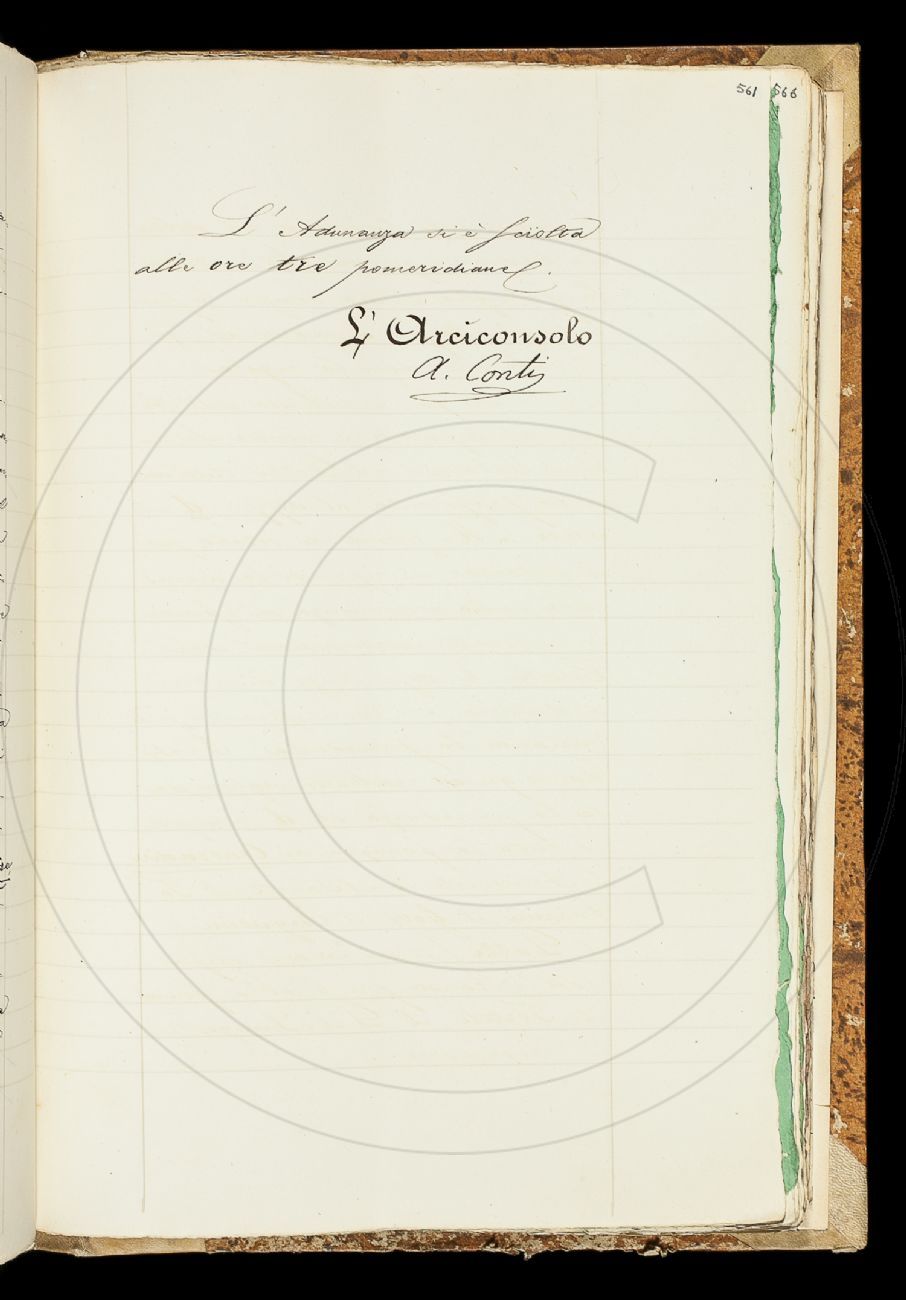 561 566
L' Adunanza si è sciolta
alle ore tre pomeridiane.
L' Arciconsolo
A. Conti